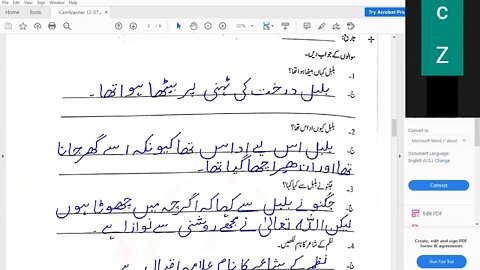 CamScanner 12-07...
Try Acrobat Pro
تاریخ:
سوالوں کے جواب دیں۔
1- بلبل کہاں بیٹھا ہوا تھا؟
ج- بلبل درخت کی ٹہنی پر بیٹھا ہوا تھا۔
2- بلبل کیوں اداس تھا؟
ج- بلبل اس لیے اداس تھا کیونکہ اسے گھر جانا
تھا اور اندھیرا چھا گیا تھا۔
3- جگنو نے بلبل سے کیا کہا؟
ج- جگنو نے بلبل سے کہا کہ اگرچہ میں چھوٹا ہوں
لیکن اللہ تعالیٰ نے مجھے روشنی سے نوازا ہے۔
4- نظم کے شاعر کا نام لکھیں۔
ج- نظم کے شاعر کا نام علامہ اقبال ہے
C
Z
Convert to
Microsoft Word (*.docx)
Document Language:
English (U.S.) Change
Convert
Edit PDF
Create, edit and sign PDF
forms & agreements
Start Free Trial